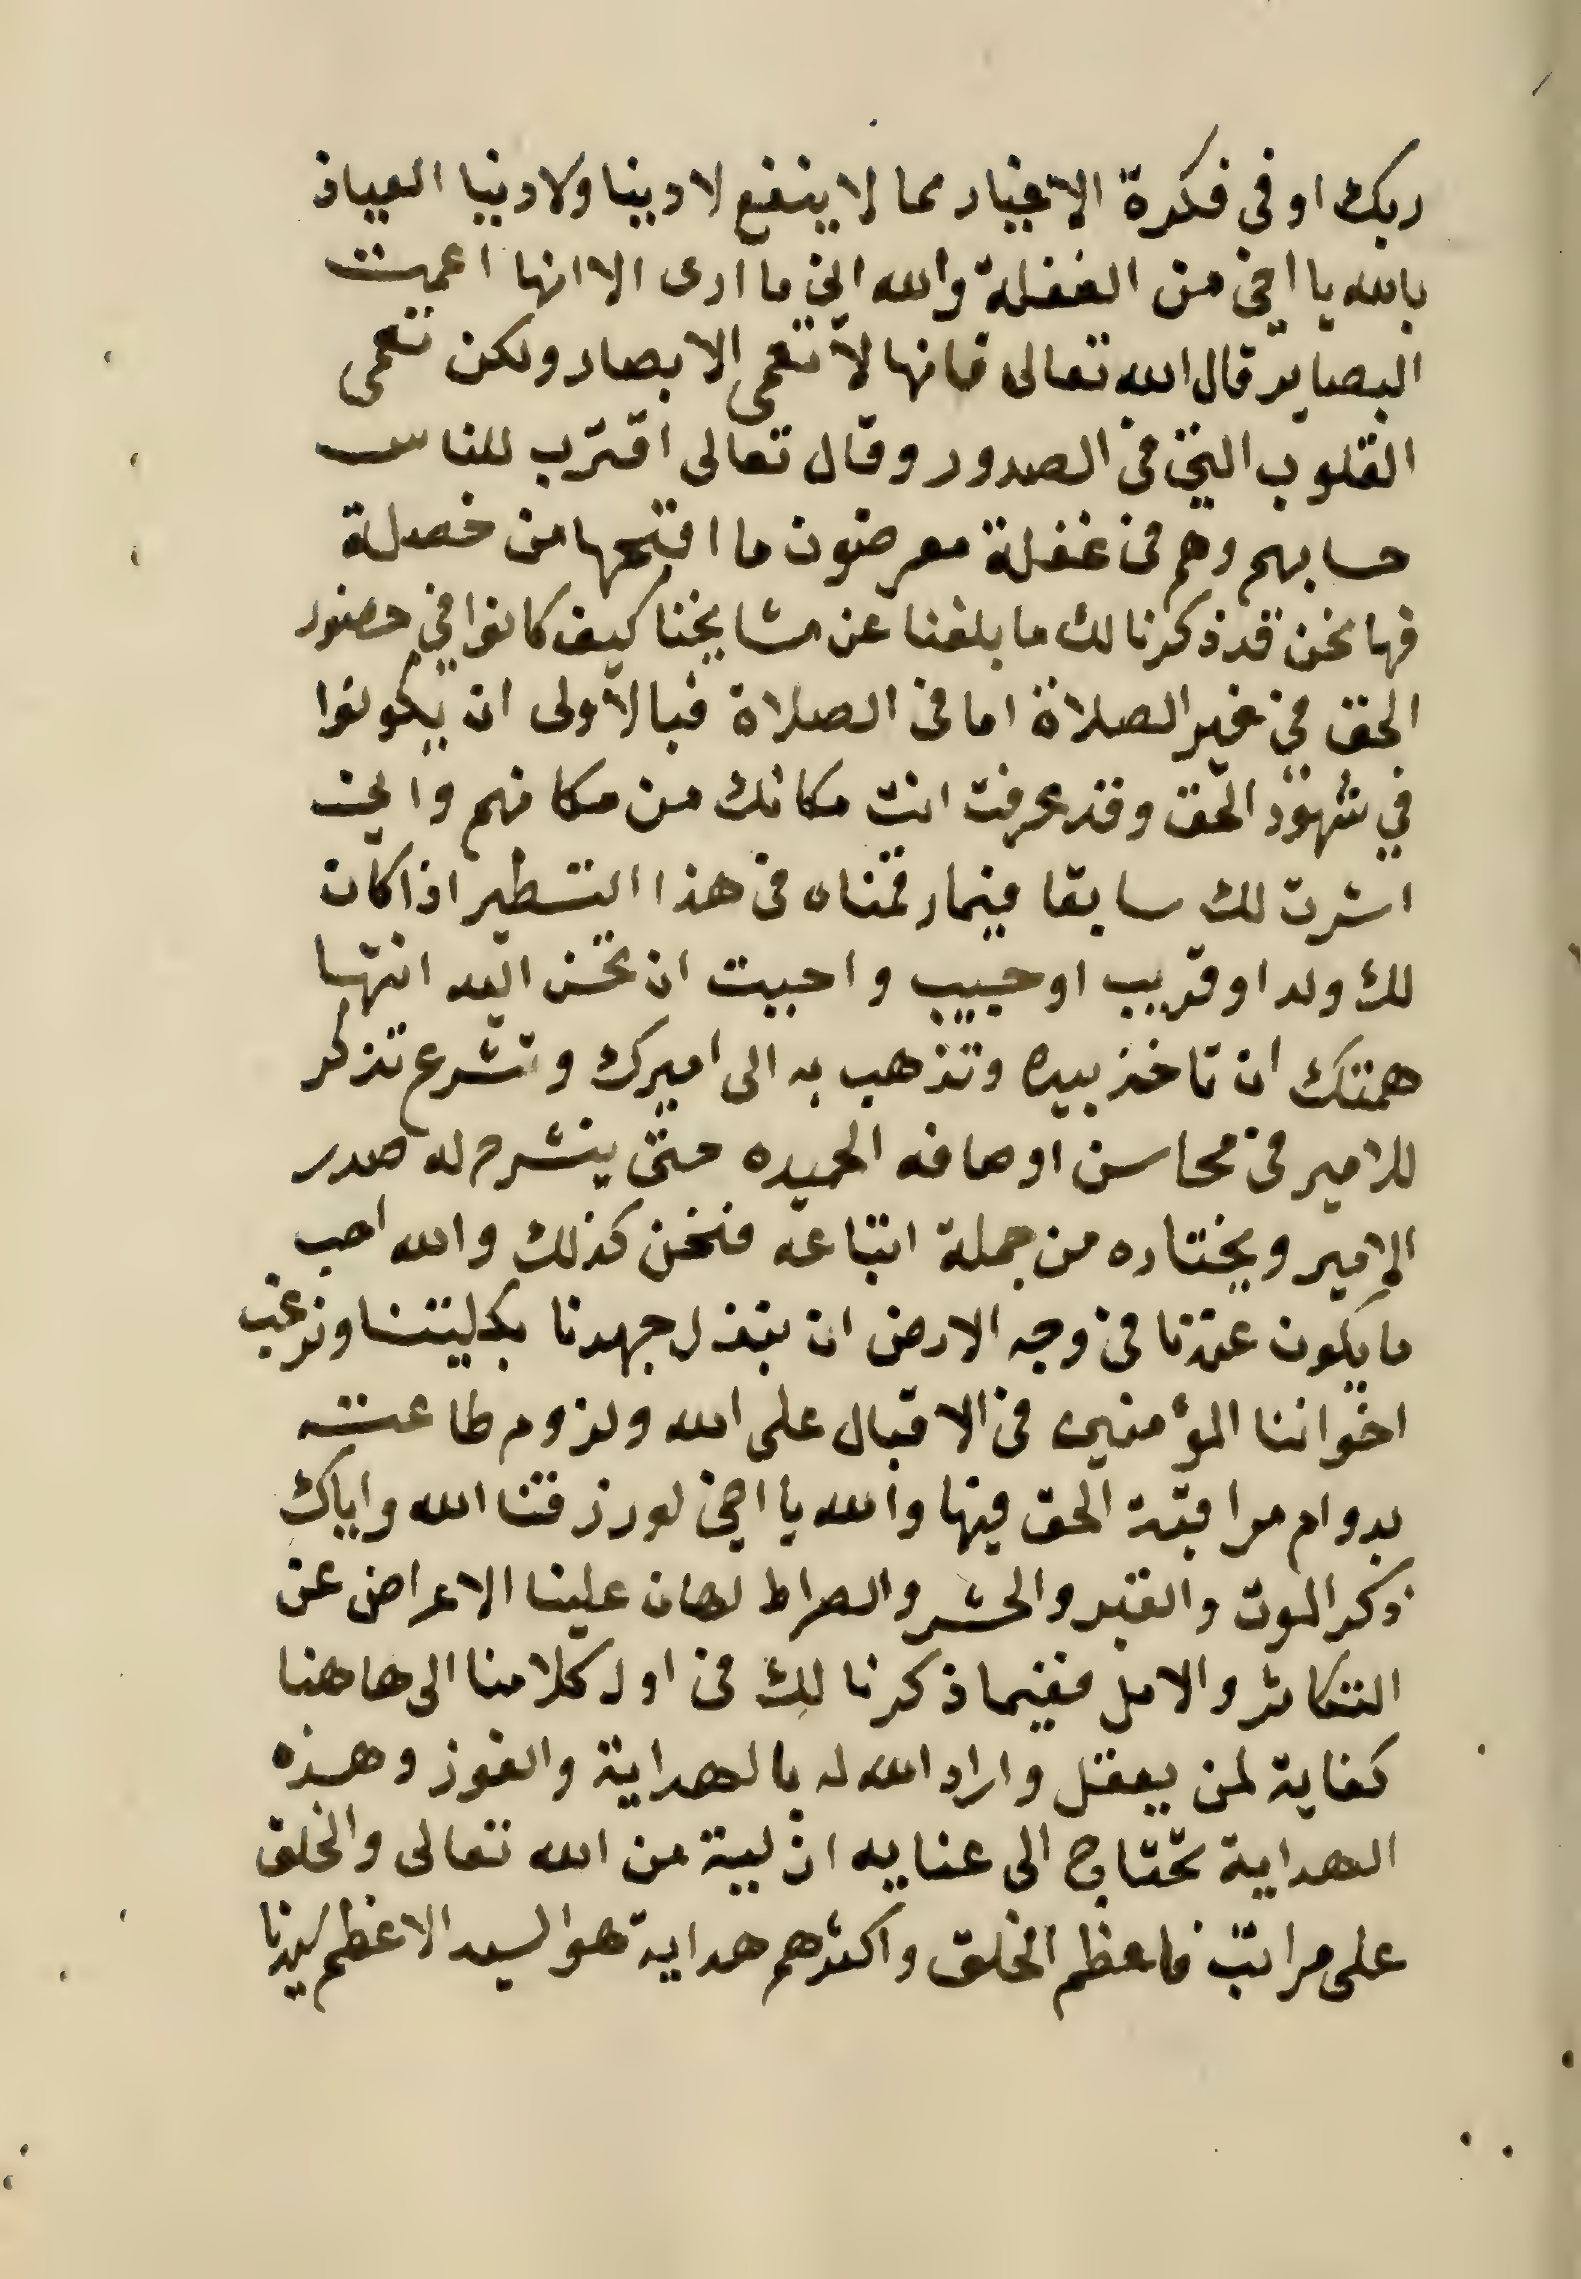 ربك او في فكرة الاغيار مما لا ينفع لا دينا ولا دنيا العياذ
بالله يا اخي من الغفلة والله اني ما ارى الا انها اعمت
البصاير قال الله تعالى فانها لا تعمى الابصار ولكن تعمى
القلوب التي في الصدور وقال تعالى اقترب للناس
حسابهم وهم في غفلة معرضون ما اقبحها من خصلة
فها نحن قد ذكرنا لك ما بلغنا عن مشايخنا كيف كانوا في حضور
الحق في غير الصلاة اما في الصلاة فبالاولى ان يكونوا
في شهود الحق وقد عرفت انت مكانك من مكانهم واني
اشرت لك سابقا فيما رقمناه في هذا التسطير اذا كان
لك ولد او قريب او حبيب واحببت ان تحسن اليه انتها
همتك ان تاخذ بيده وتذهب به الى اميرك وتشرع تذكر
للامير في محاسن اوصافه الحميده حتى ينشرح له صدر
الامير ويختاره من جملة اتباعه فنحن كذلك والله احب
ما يكون عندنا في وجه الارض ان نبذل جهدنا بكليتنا ونرغب
اخواننا المؤمنين في الاقبال على الله ولزوم طاعته
بدوام مراقبة الحق فيها والله يا اخي لو رزقنا الله واياك
ذكر الموت والقبر والحشر والصراط لهان علينا الاعراض عن
التكاثر والامل ففيما ذكرنا لك في اول كلامنا الى هاهنا
كفاية لمن يعقل واراد الله له بالهداية والفوز وهذه
الهداية تحتاج الى عنايه ازلية من الله تعالى والخلق
على مراتب فاعظم الخلق واكثرهم هداية هو السيد الاعظم سيدنا